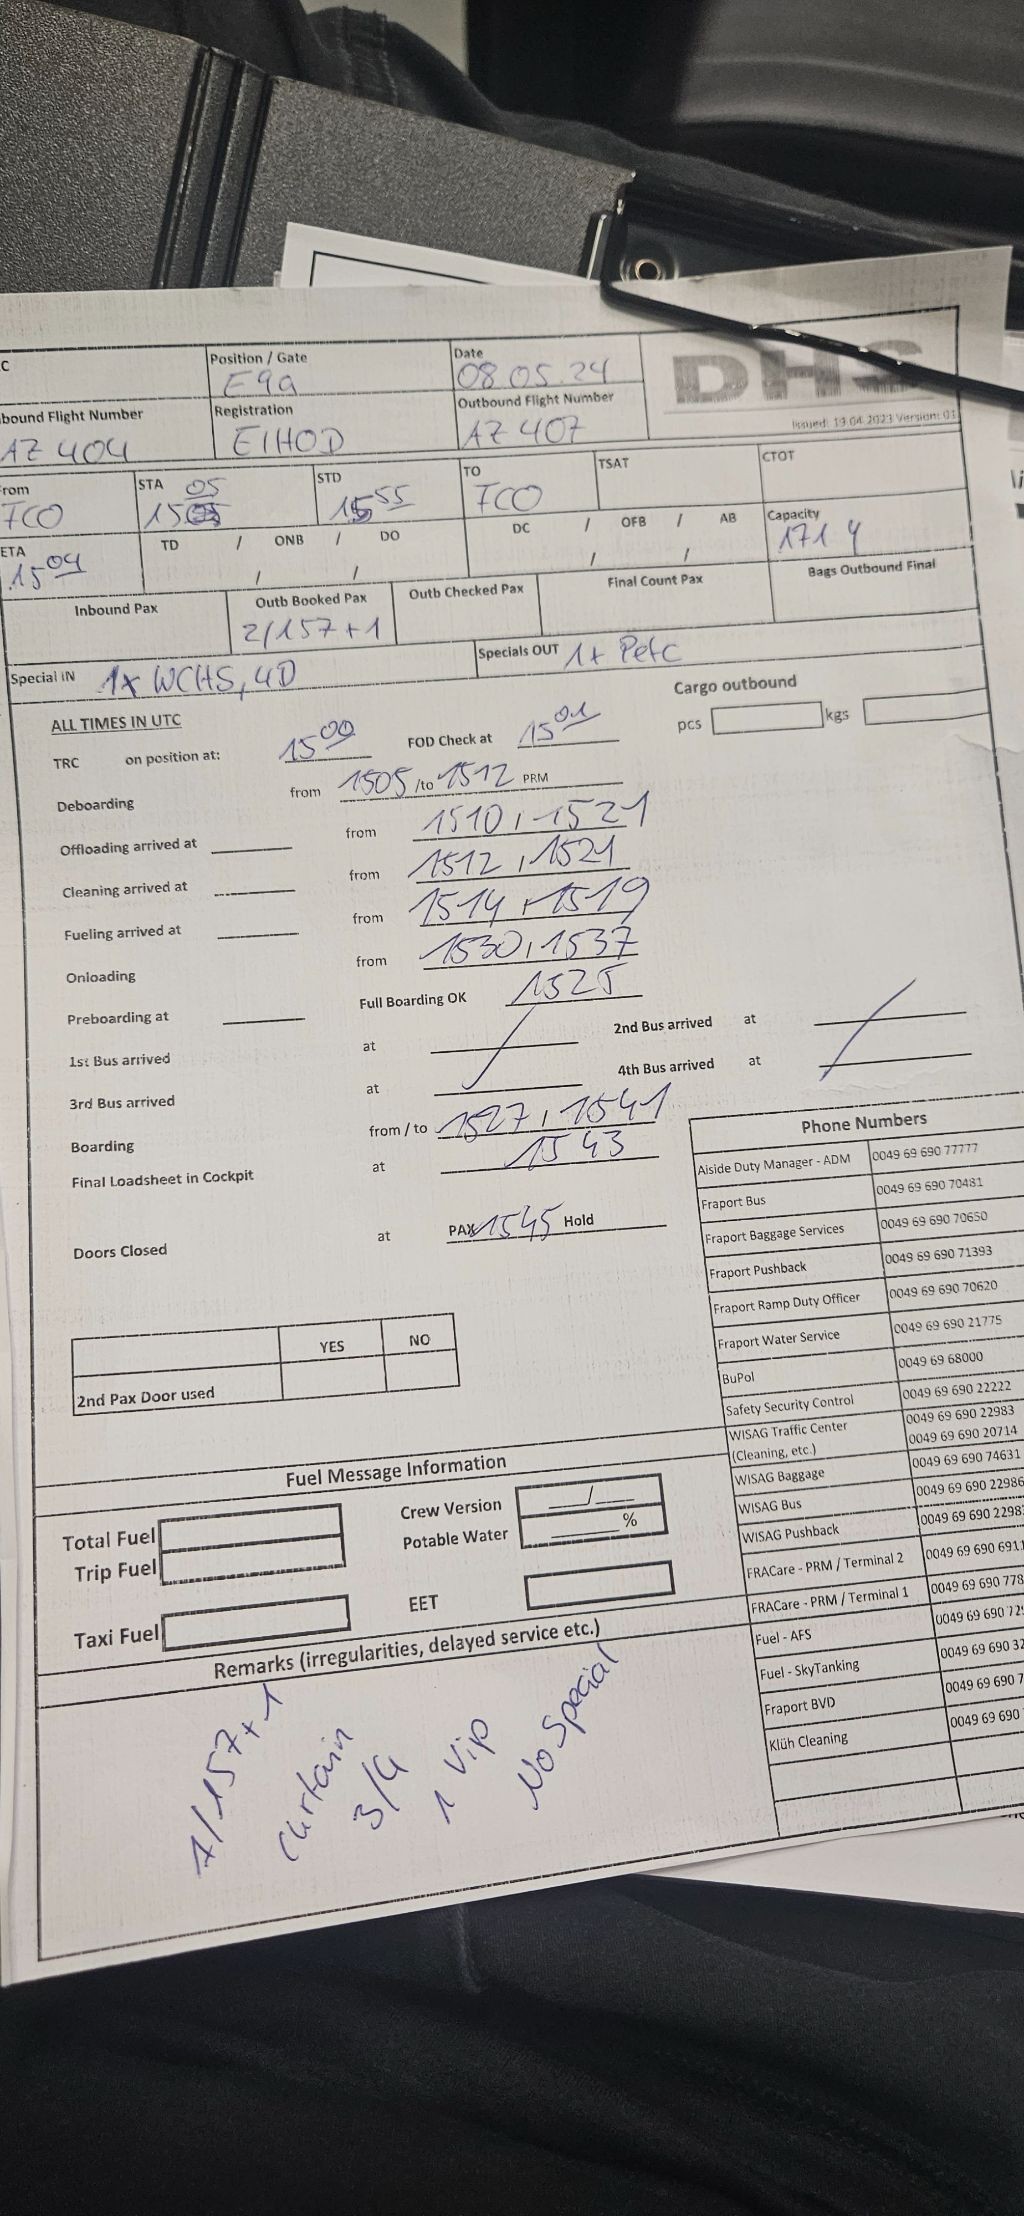 C Position / Gate Date DHS
E9a 08.05.24
bound Flight Number Registration Outbound Flight Number
Issued: 19.04.2023 Version: 01
AZ 404 EIHOD AZ 407
rom STA STD TO TSAT CTOT
FCO 1505 1555 FCO
ETA TD / ONB / DO DC / OFB / AB Capacity
1504 / / / / 171 Y
Inbound Pax Outb Booked Pax Outb Checked Pax Final Count Pax Bags Outbound Final
2/157+1
Special IN 1x WCHS, 4D Specials OUT 1x Petc
ALL TIMES IN UTC Cargo outbound
pcs kgs
TRC on position at: 1500 FOD Check at 1501
Deboarding from 1505 /to 1512 PRM
Offloading arrived at from 1510, 1521
Cleaning arrived at from 1512, 1521
Fueling arrived at from 1514, 1519
Onloading from 1530, 1537
Preboarding at Full Boarding OK 1525
1st Bus arrived at 2nd Bus arrived at
3rd Bus arrived at 4th Bus arrived at
Boarding from / to 1527, 1541
Final Loadsheet in Cockpit at 1543
Doors Closed at PAX 1545 Hold
YES NO
2nd Pax Door used
Phone Numbers
Aiside Duty Manager - ADM 0049 69 690 77777
Fraport Bus 0049 69 690 70481
Fraport Baggage Services 0049 69 690 70650
Fraport Pushback 0049 69 690 71393
Fraport Ramp Duty Officer 0049 69 690 70620
Fraport Water Service 0049 69 690 21775
BuPol 0049 69 68000
Safety Security Control 0049 69 690 22222
WISAG Traffic Center 0049 69 690 22983
(Cleaning, etc.) 0049 69 690 20714
WISAG Baggage 0049 69 690 74631
WISAG Bus 0049 69 690 22986
WISAG Pushback 0049 69 690 2298
FRACare - PRM / Terminal 2 0049 69 690 691
FRACare - PRM / Terminal 1 0049 69 690 778
Fuel - AFS 0049 69 690 72
Fuel - SkyTanking 0049 69 690 32
Fraport BVD 0049 69 690 7
Klüh Cleaning 0049 69 690
Fuel Message Information
Total Fuel Crew Version /
Trip Fuel Potable Water %
Taxi Fuel EET
Remarks (irregularities, delayed service etc.)
1/157+1
Curtain
3/4
1 Vip
No Special